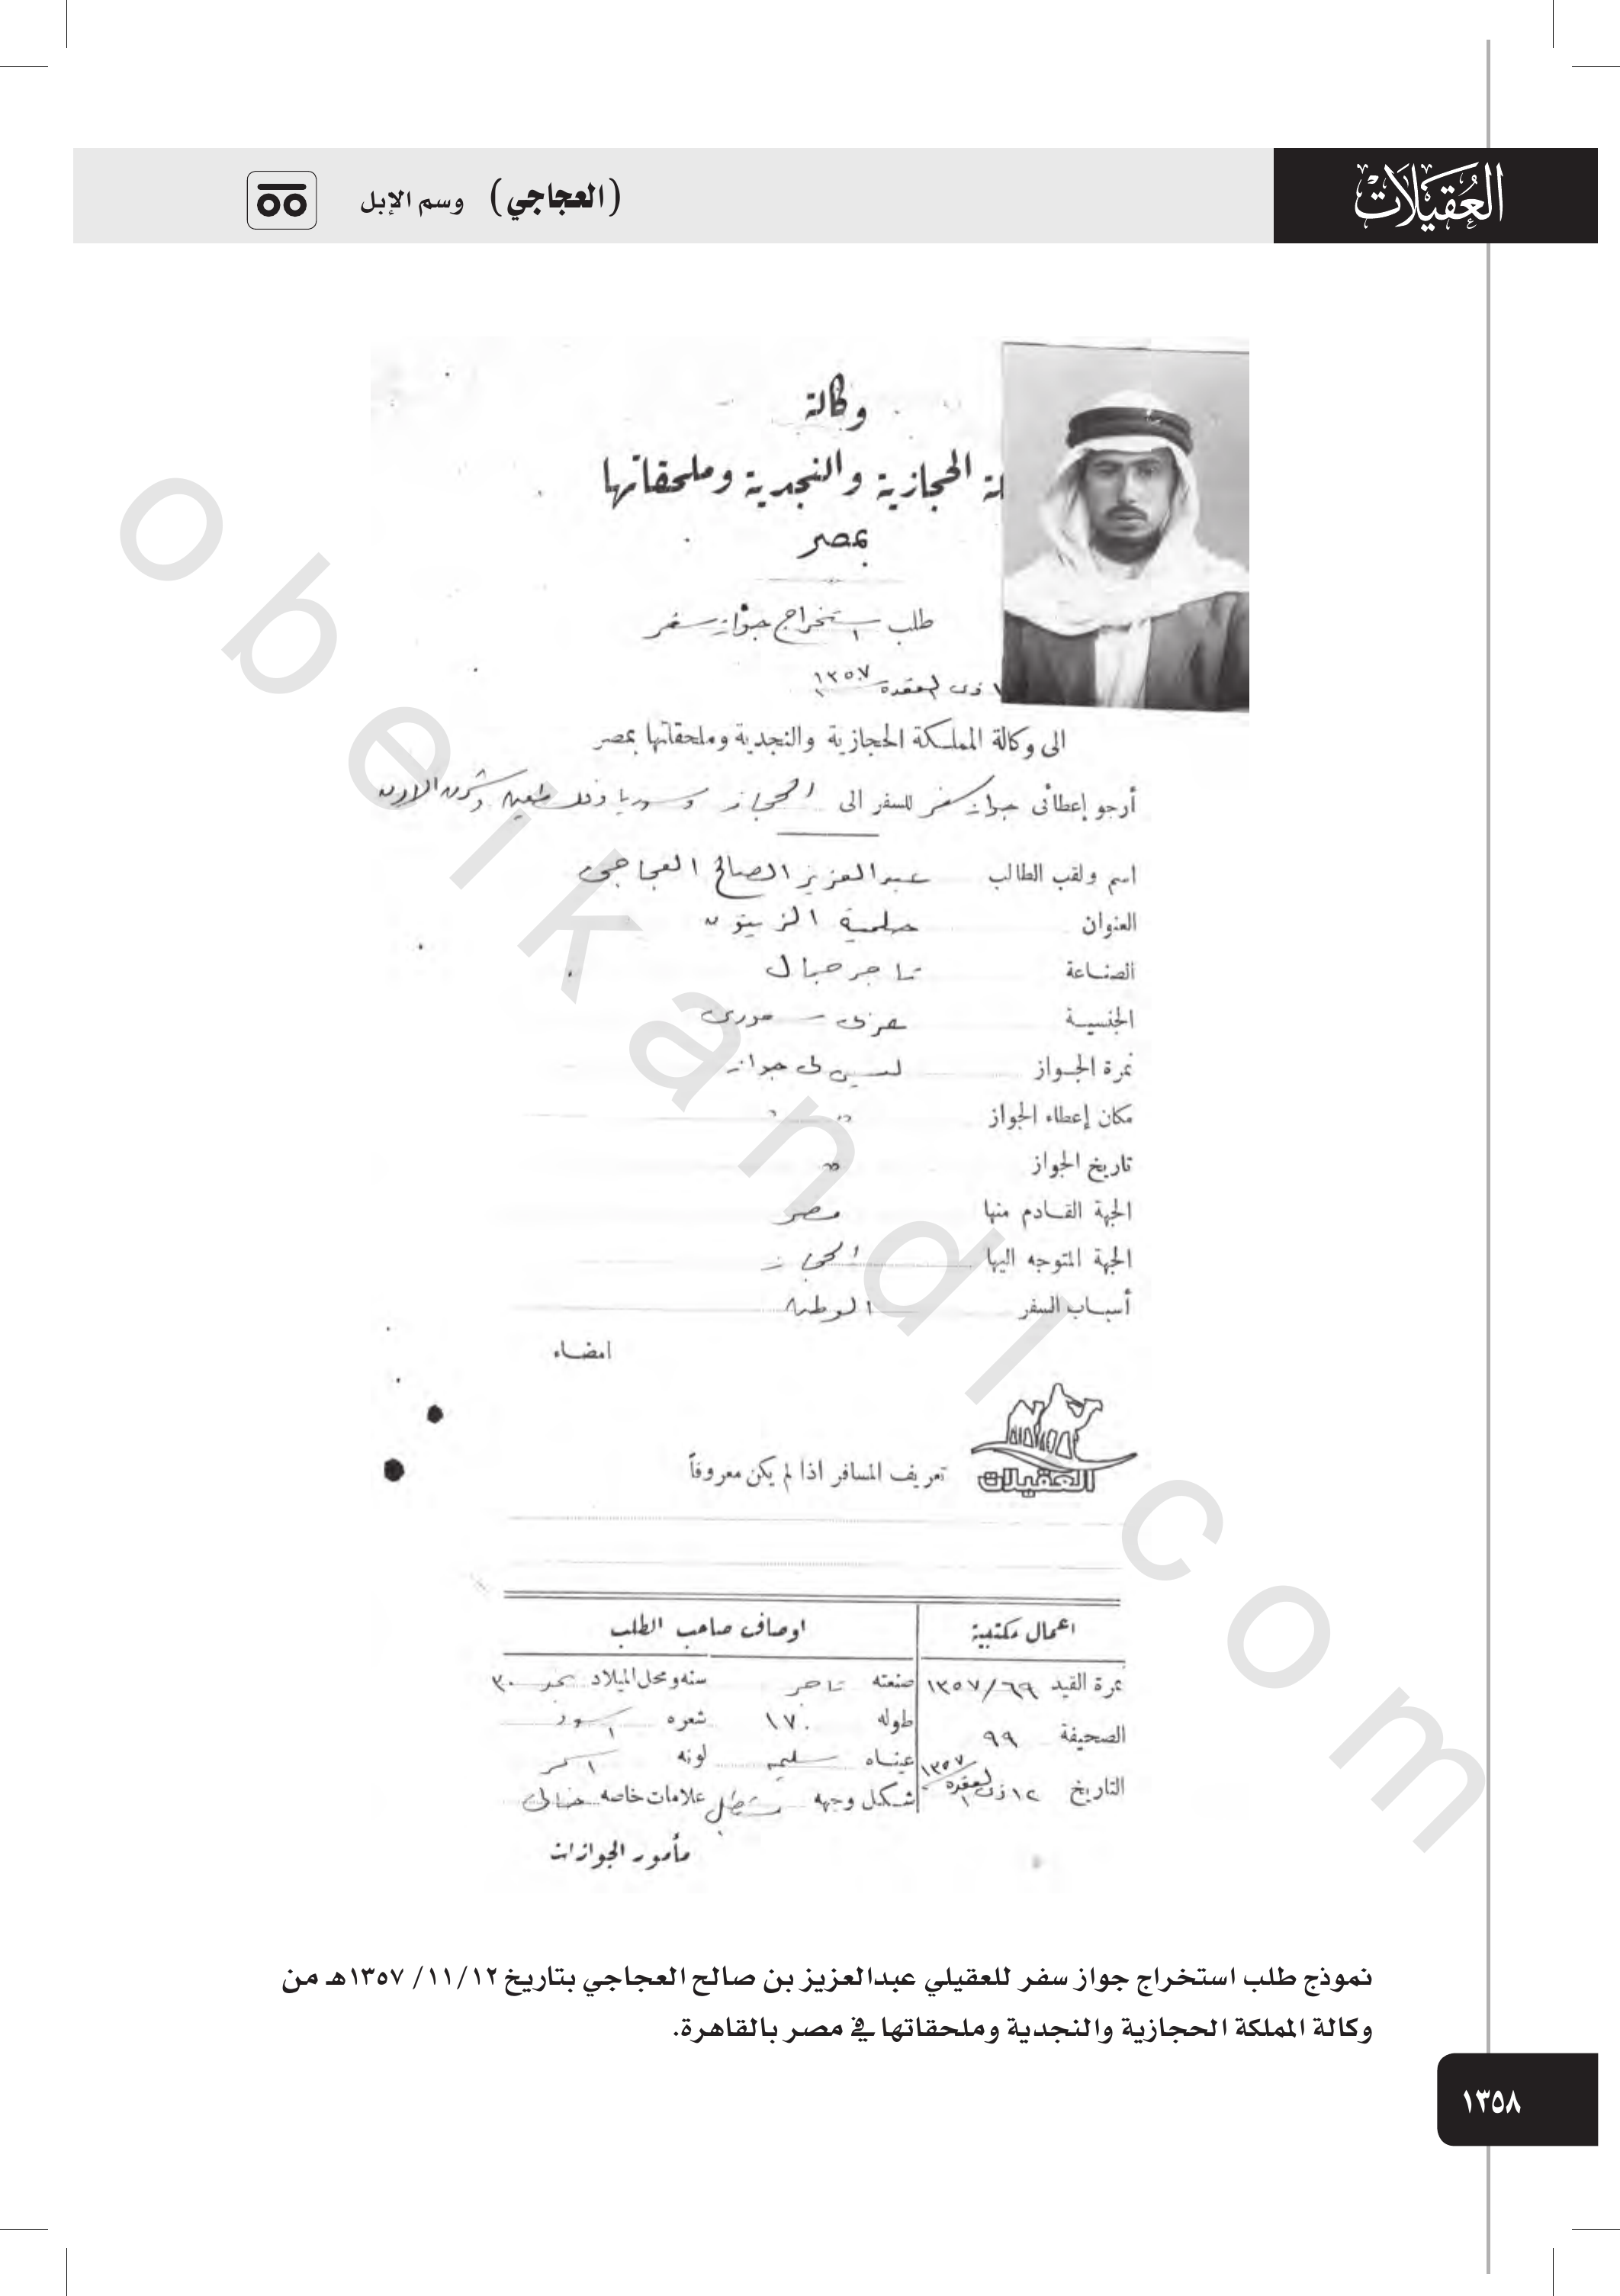 العُقيلات
(العجاجي) وسم الإبل
وكالة
لة الحجازية والنجدية وملحقاتها
بمصر
طلب استخراج جواز سفر
ذى القعدة ١٣٥٧
الى وكالة المملكة الحجازية والنجدية وملحقاتها بمصر
أرجو إعطائى جواز سفر للسفر الى الحجاز وسوريا وفلسطين وشرق الاردن
اسم ولقب الطالب عبد العزيز الصالح العجاجى
العنوان حلمية الزيتون
الصناعة تاجر جمال
الجنسية سعودى
نمرة الجواز ليس لى جواز
مكان إعطاء الجواز " "
تاريخ الجواز "
الجهة القادم منها مصر
الجهة المتوجه اليها الحجاز
أسباب السفر الوطن
امضاء
العقيلات
تعريف المسافر اذا لم يكن معروفاً
اعمال مكتبية اوصاف صاحب الطلب
نمرة القيد ١٣٥٧/٦٩ صنعته تاجر سنه ومحل الميلاد ٣٠
الصحيفة ٩٩ طوله ١٧٠ شعره اسود
التاريخ ١٢ ذى القعدة ١٣٥٧ عيناه سليمه لونه اسمر
شكل وجهه مستطيل علامات خاصه خالى
مأمور الجوازات
نموذج طلب استخراج جواز سفر للعقيلي عبدالعزيز بن صالح العجاجي بتاريخ ١٢/ ١١/ ١٣٥٧هـ من
وكالة المملكة الحجازية والنجدية وملحقاتها في مصر بالقاهرة.
١٣٥٨
obeikandl.com